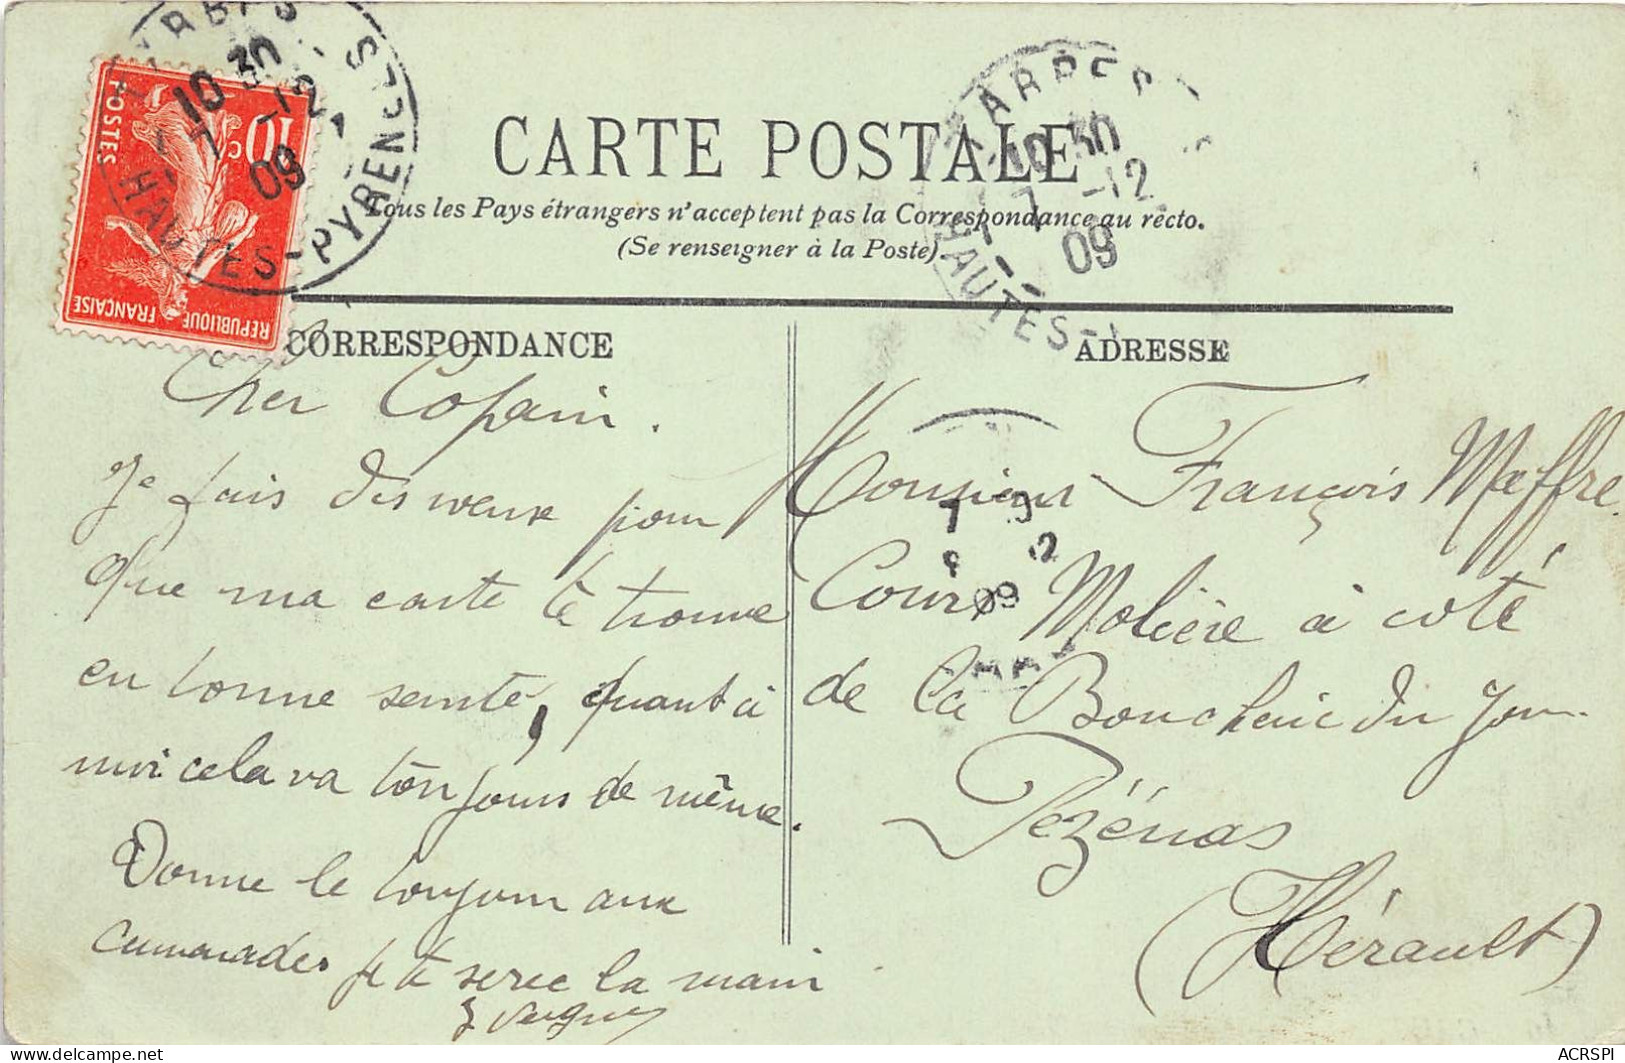 TARBES
10 30
7 -12
09
HAUTES-PYRENEES
10c
POSTES
REPUBLIQUE FRANÇAISE
TARBES
10 30
7 -12
09
HAUTES-
CARTE POSTALE
Tous les Pays étrangers n'acceptent pas la Correspondance au recto.
(Se renseigner à la Poste).
CORRESPONDANCE
Cher Copain.
Je fais des veux pour
que ma carte te trouve
en bonne santé, quant à
moi cela va toujours de même.
Donne le bonjour aux
camarades je te serre la main
ADRESSE
Monsieur François Maffre
Cours Molière à coté
de la Boucherie du Jou.
Pézénas
(Hérault)
ACRSPI